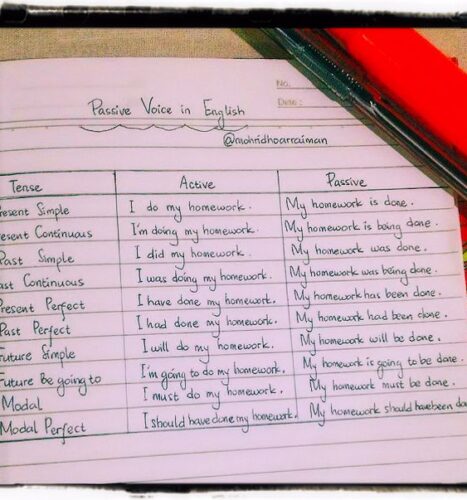 No.
Date :
Passive Voice in English
@mohridhoarraiman
Tense Active Passive
resent Simple I do my homework. My homework is done.
resent Continuous I'm doing my homework. My homework is being done.
Past Simple I did my homework. My homework was done.
ast Continuous I was doing my homework. My homework was being done.
Present Perfect I have done my homework. My homework has been done.
Past Perfect I had done my homework. My homework had been done.
Future Simple I will do my homework. My homework will be done.
Future Be going to I'm going to do my homework. My homework is going to be done.
Modal I must do my homework. My homework must be done.
Modal Perfect I should have done my homework. My homework should have been do